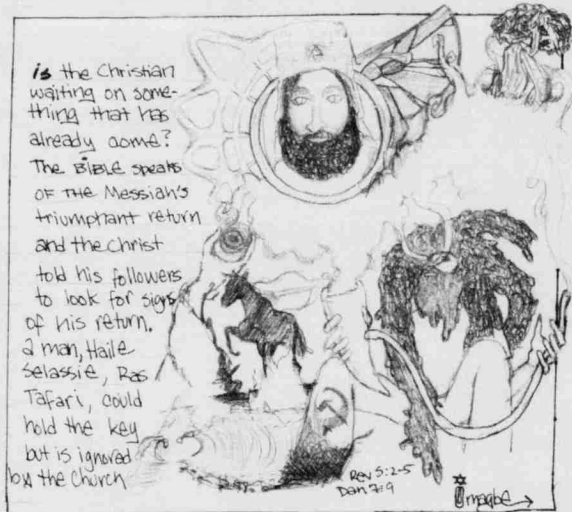 is the Christian
waiting on some-
thing that has
already come?
The BiBLE speaks
OF THE Messiah's
triumphant return
and the Christ
told his followers
to look for signs
of his return.
a man, Haile
Selassie, Ras
Tafari, could
hold the key
but is ignored
by the Church
Rev 5:2-5
Dan 7:9
Imagbe